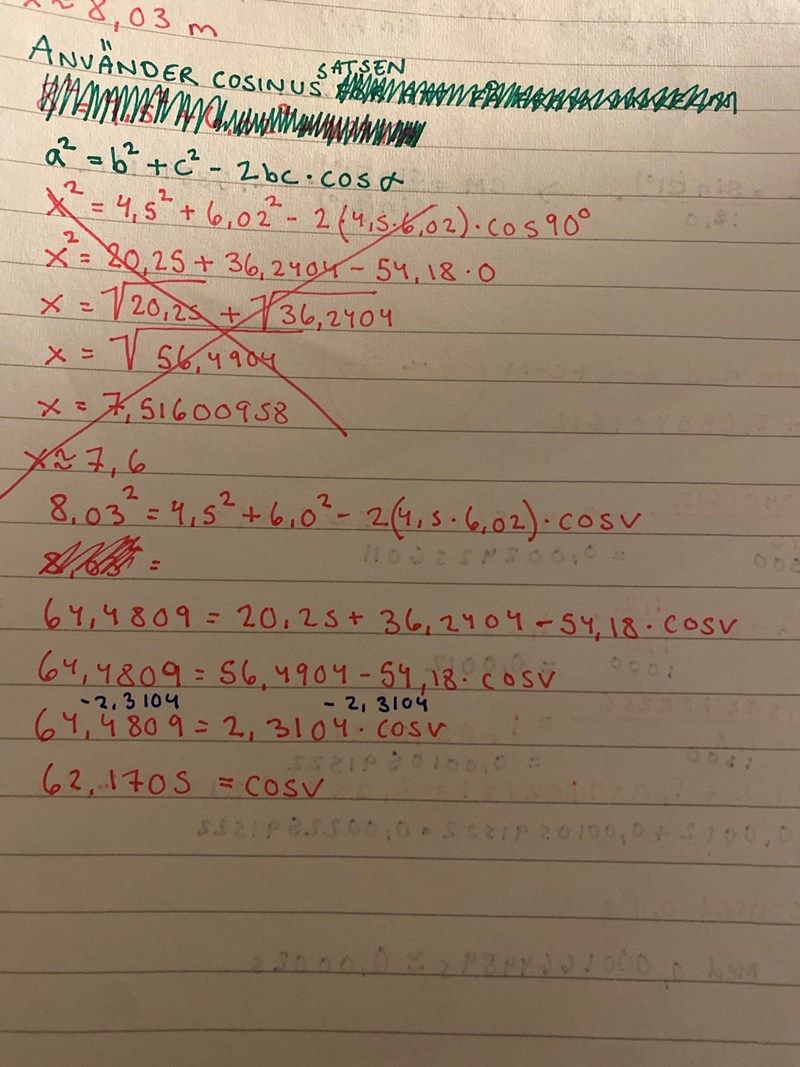 x ≈ 8,03 m
ANVÄNDER COSINUS SATSEN
a² = b² + c² - 2bc · cos α
x² = 4,5² + 6,02² - 2(4,5·6,02) · cos 90°
x² = 20,25 + 36,2404 - 54,18 · 0
x = √20,25 + √36,2404
x = √56,4904
x = 7,51600958
x ≈ 7,6
8,03² = 4,5² + 6,0² - 2(4,5·6,02) · cosv
64,4809 = 20,25 + 36,2404 - 54,18 · cosv
64,4809 = 56,4904 - 54,18 · cosv
-2,3104 - 2,3104
64,4809 = 2,3104 · cosv
62,1705 = cosv